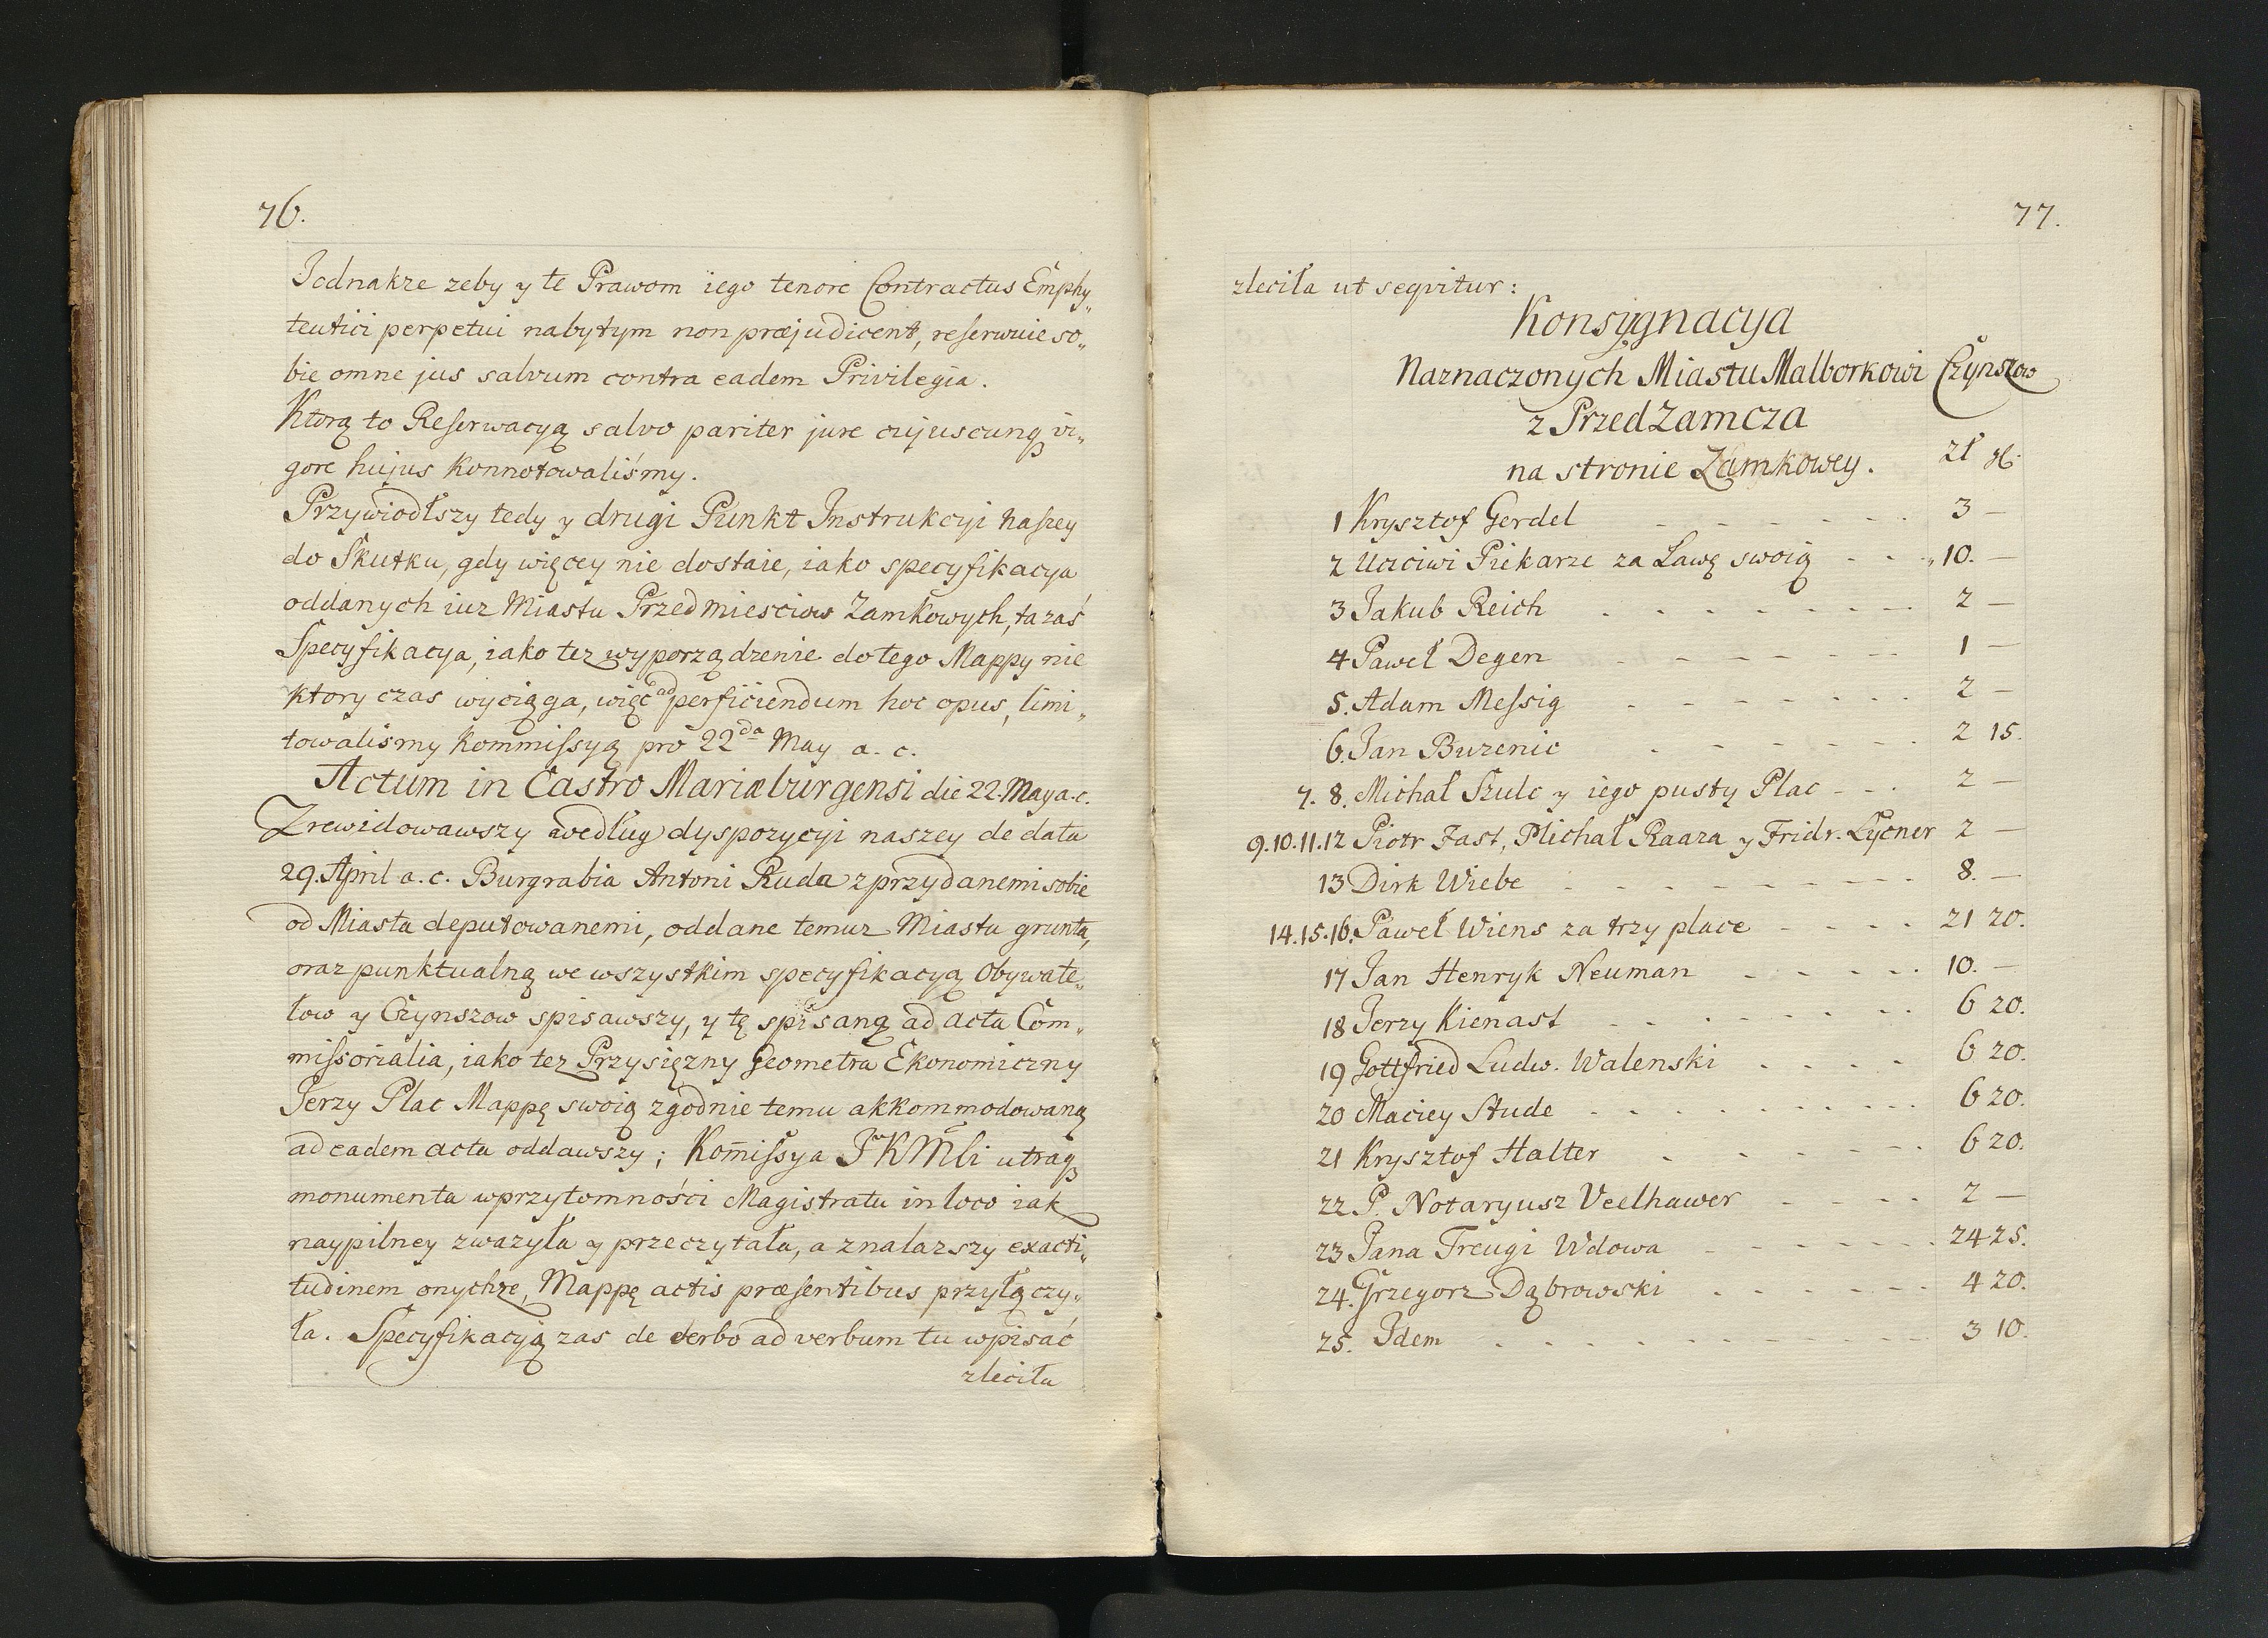 76.
Jednakze zeby y te Prawom iego tenore Contractus Emphy„
teutici perpetui nabytym non præjudicent, reserwuie so„
bie omne jus salvum contra eadem Privilegia.
Ktorą to Reserwacyą salvo pariter jure cujuscunqȝ vi„
gore hujus konnotowaliśmy.
Przywiodłszy tedy y drugi Punkt Instrukcyi naszey
do Skutku, gdy więcey nie dostaie, iako specyfikacya
oddanych iuz Miastu Przedmiesciow Zamkowych, ta zaś
Specyfikacya, iako tez wyporządzenie do tego Mappy nie
ktory czas wyciąga, więc ad perficiendum hoc opus, limi„
towalismy kommissyą pro 22da May a. c.
Actum in Castro Mariæburgensi die 22. May a. c.
Zrewidowawszy według dyspozycyi naszey de data
29. April a. c. Burgrabia Antoni Ruda z przydanemi sobie
od Miasta deputowanemi, oddane temuz Miastu grunta,
oraz punktualną we wszystkim specyfikacyą Obywate„
low y Czynszow spisawszy, y tę spisaną ad acta Com„
missorialia, iako tez Przysięzny Geometra Ekonomiczny
Jerzy Plac Mappę swoią zgodnie temu akkommodowaną
ad eadem acta oddawszy; Kom̃issya JKMłi utraqȝ
monumenta w przytomności Magistratu in loco iak
naypilney zwazyła y przeczytała, a znalazszy exacti„
tudinem onychze, Mappę actis præsentibus przyłączy„
ła. Specyfikacyą zas de verbo ad verbum tu wpisać
zleciła
77.
zleciła ut seqvitur:
Konsygnacya
Naznaczonych Miastu Malborkowi Czynszow
z Przedzamcza
na stronie Zamkowey. zł gl.
1 Krysztof Gerdel - - - - - - 3 —
2 Uczciwi Piekarze za Ławę swoią - - - 10. —
3 Jakub Reich - - - - - - - 2 —
4 Paweł Degen - - - - - - - 1 —
5. Adam Messig - - - - - - - 2 —
6. Jan Buzenic - - - - - - - 2 15.
7. 8. Michał Szulc y iego pusty Plac - - . 2 —
9. 10. 11. 12 Piotr Fast, Michał Raaza y Fridr. Lycner 2 —
13 Dirk Wiebe - - - - - - - 8. —
14. 15. 16. Paweł Wiens za trzy place - - - - 21 20.
17 Jan Henryk Neuman - - - - - 10. —
18 Jerzy Kienast - - - - - - - 6 20.
19 Gottfried Ludw. Walenski - - - - 6 20.
20 Maciey Stude - - - - - - - 6 20.
21 Krysztof Halter - - - - - - 6 20.
22 P. Notaryusz Veelhawer - - - - 2 —
23 Jana Treugi Wdowa - - - - - - 24 25.
24. Grzegorz Dąbrowski - - - - - - 4 20.
25. Idem - - - - - - - - 3 10.